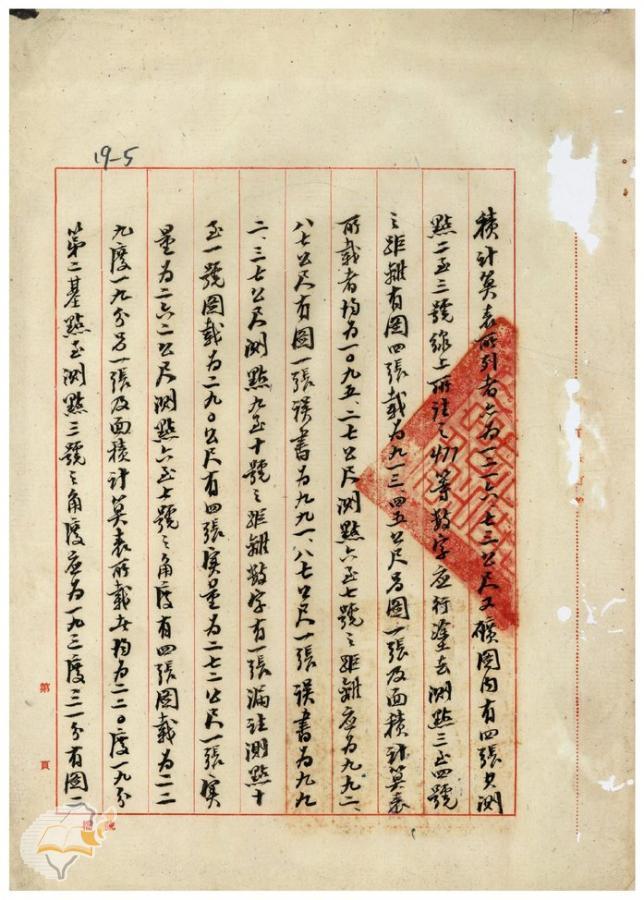 19-5
積計算表所列者亦為一二六七三公尺又礦圖內有四張史測
點二至三號線上所註之切等數字應行塗去測點三至四號
之距離有圖四張載為九一三四五公尺另圖一張及面積計算表
所載者均為一〇九五.二七公尺測點六至七號之距離應為九九二、
八七公尺有圖一張誤書為九九一、八七公尺一張誤書為九九
二、三七公尺測點九至十號之距離數字有一張漏註測點十
至一號圖載為二九〇公尺有四張實量為二七二公尺一張實
量為二六二公尺測點六至七號之角度有四張圖載為二二
九度一九分另一張及面積計算表所載者均為二二〇度一九分
第二基點至測點三號之角度應為一九三度三一分有圖二
第 頁